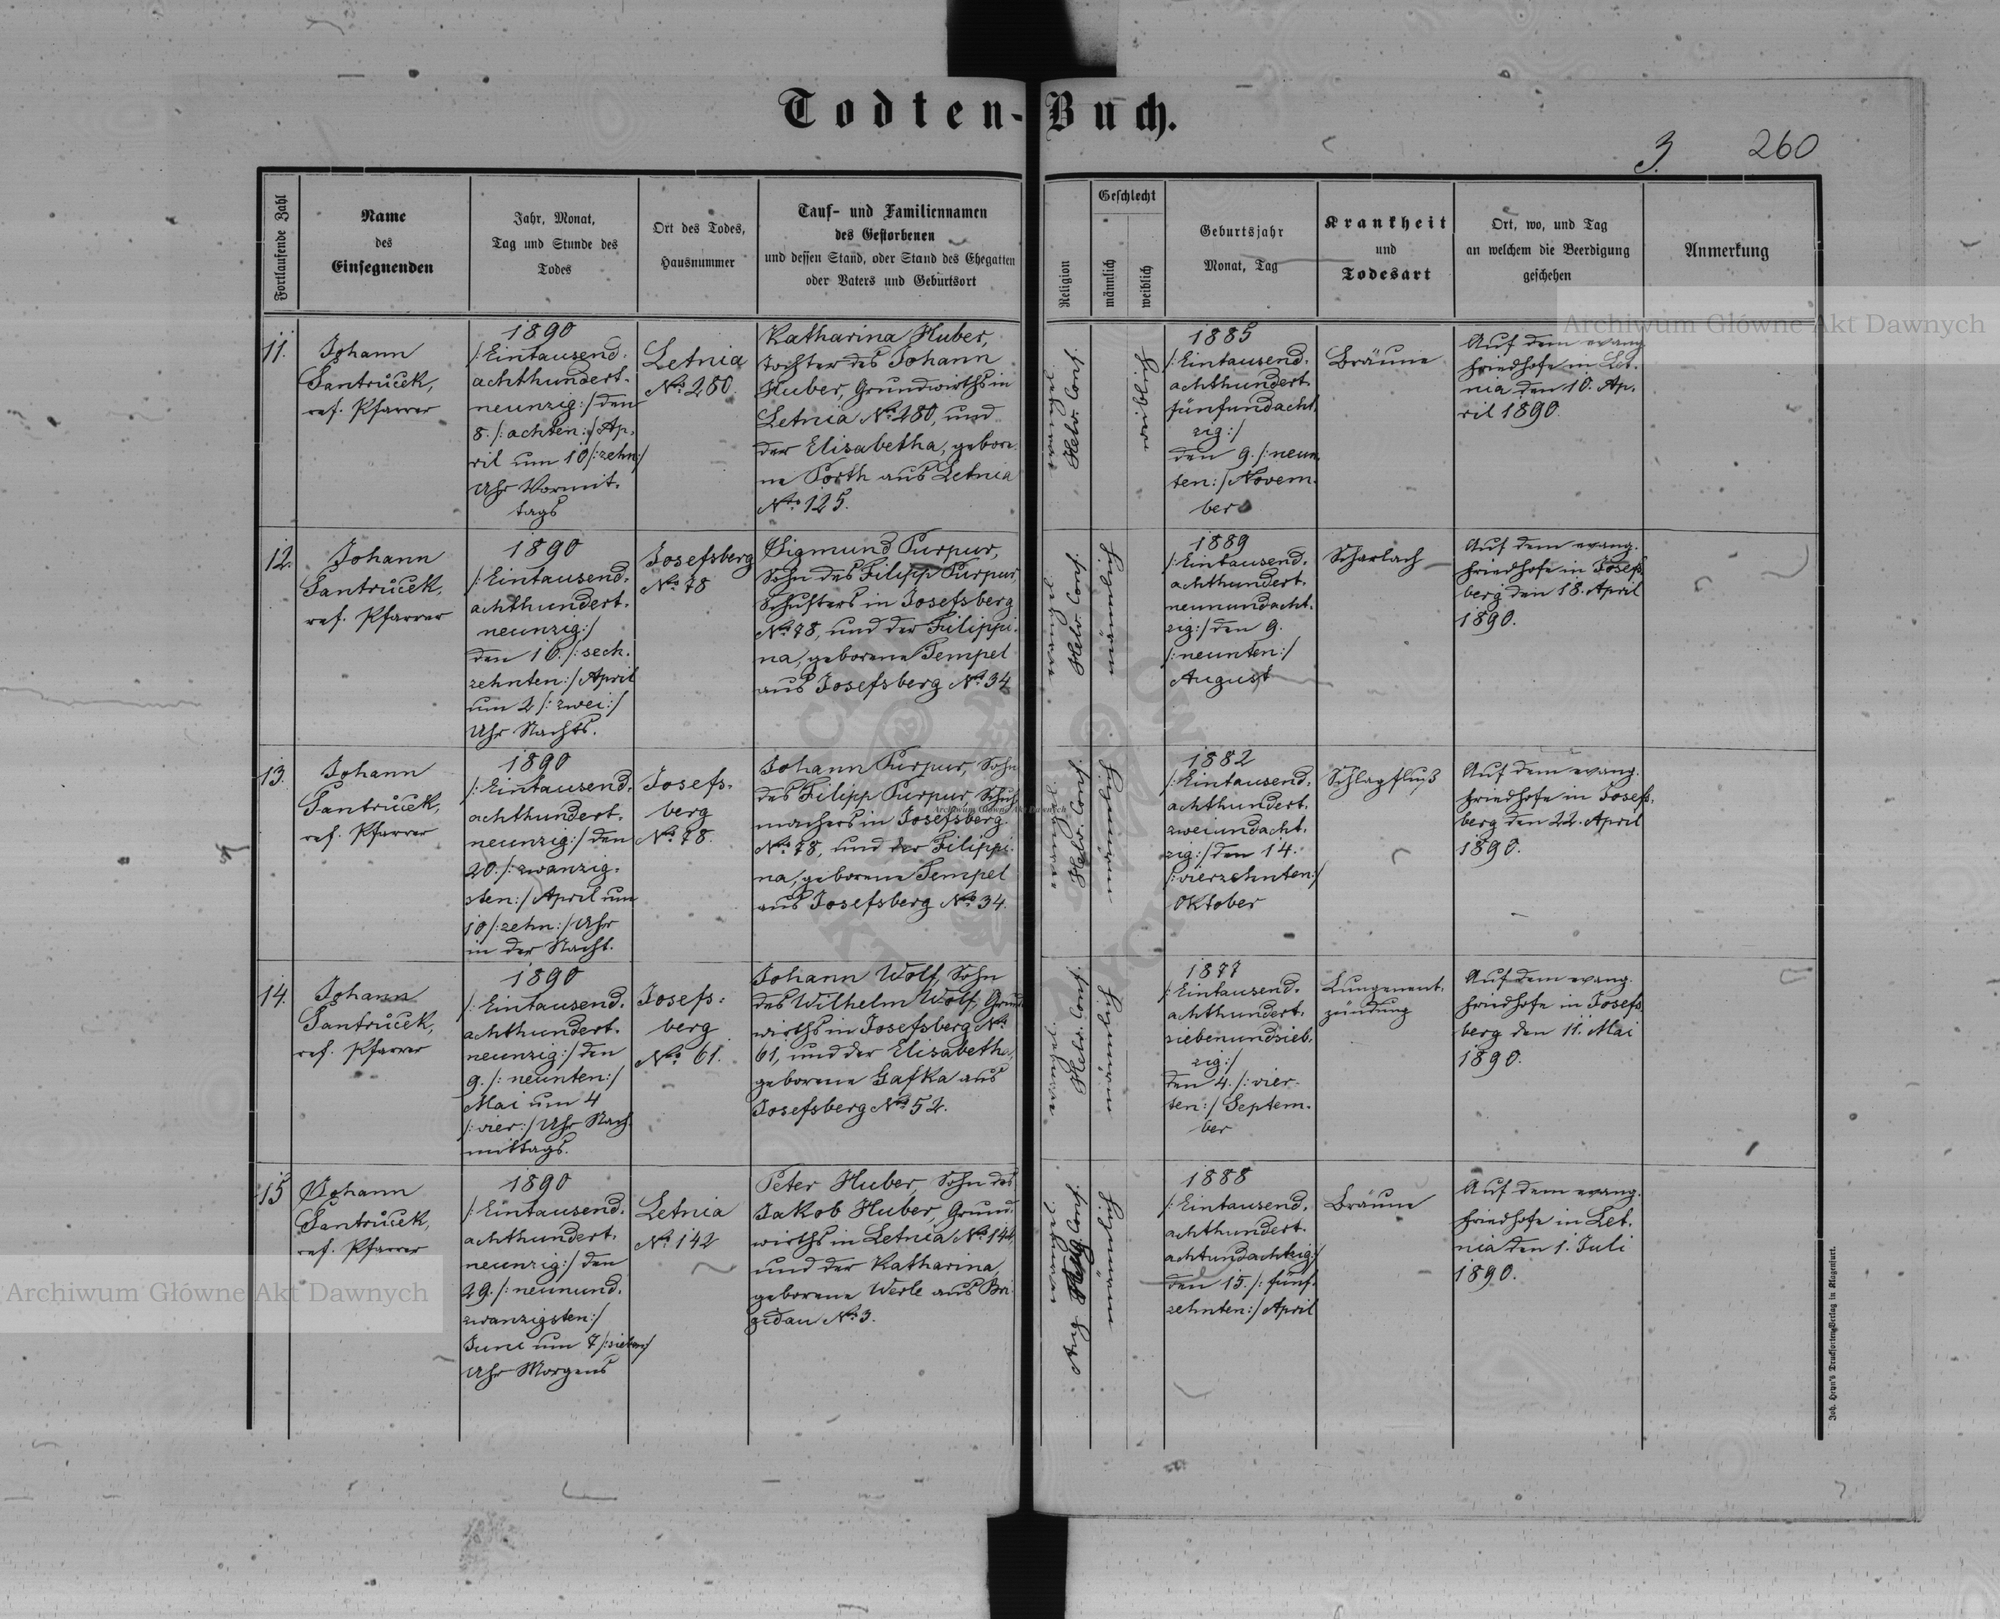 Todten-Buch.
3.
260
Fortlaufende Zahl
Name
des
Einsegnenden
Jahr, Monat,
Tag und Stunde des
Todes
Ort des Todes,
Hausnummer
Tauf- und Familiennamen
des Gestorbenen
und dessen Stand, oder Stand des Ehegatten
oder Vaters und Geburtsort
Religion
Geschlecht
männlich
weiblich
Geburtsjahr
Monat, Tag
Krankheit
und
Todesart
Ort, wo, und Tag
an welchem die Beerdigung
geschehen
Anmerkung
11.
Johann
Santrůček,
ref. Pfarrer
1890
/:Eintausend.
achthundert.
neunzig:/ den
8. /:achten:/ Ap.
ril um 10 /:zehn:/
Uhr Vormit.
tags
Letnia
No. 280.
Katharina Huber,
Tochter des Johann
Huber, Grundwirths in
Letnia No. 280, und
der Elisabetha, gebore.
ne Porth aus Letnia
No. 125.
Helv. Conf.
weiblich
1885
/:Eintausend.
achthundert.
fünfundacht.
zig:/
den 9. /:neun.
ten:/ Novem.
ber
Bräune
Auf dem evang.
Friedhofe in Let.
nia den 10. Ap.
ril 1890.
12.
Johann
Santrůček,
ref. Pfarrer
1890
/:Eintausend.
achthundert.
neunzig:/
den 16. /:sech.
zehnten:/ April
um 2 /:zwei:/
Uhr Nachts.
Josefsberg
No. 78
Sigmund Purpur,
Sohn des Filipp Purpur,
Schusters in Josefsberg
No. 78, und der Filippi.
na, geborene Tempel
aus Josefsberg No. 34
Helv. Conf.
1889
/:Eintausend.
achthundert.
neunundacht.
zig:/ den 9.
/:neunten:/
August
Scharlach
Auf dem evang.
Friedhofe in Josefs
berg den 18. April
1890.
13.
Johann
Santrůček,
ref. Pfarrer
1890
/:Eintausend.
achthundert.
neunzig:/ den
20. /:zwanzig.
sten:/ April um
10 /:zehn:/ Uhr
in der Nacht.
Josefs.
berg
No. 78.
Johann Purpur, Sohn
des Filipp Purpur, Schuh
machers in Josefsberg
No. 78, und der Filippi.
na, geborene Tempel
aus Josefsberg No. 34.
Helv. Conf.
1882
/:Eintausend.
achthundert.
zweiundacht.
zig:/ den 14.
/:vierzehnten:/
Oktober
Schlagfluß
Auf dem evang.
Friedhofe in Josefs.
berg den 22. April
1890.
14.
Johann
Santrůček,
ref. Pfarrer
1890
/:Eintausend.
achthundert.
neunzig:/ den
9. /:neunten:/
Mai um 4
/:vier:/ Uhr Nach
mittags.
Josefs:
berg
No. 61.
Johann Wolf, Sohn
des Wilhelm Wolf, Grund
wirths in Josefsberg No.
61, und der Elisabetha,
geborene Gafka aus
Josefsberg No. 52.
Helv. Conf.
1877
/:Eintausend.
achthundert.
siebenundsieb.
zig:/
den 4. /:vier.
ten:/ Septem.
ber
Lungenent.
zündung
Auf dem evang.
Friedhofe in Josefs
berg den 11. Mai
1890.
15
Johann
Santrůček,
ref. Pfarrer
1890
/:Eintausend.
achthundert.
neunzig:/ den
29. /:neunund.
zwanzigsten:/
Juni um 7 /:sieben:/
Uhr Morgens
Letnia
No. 142
Peter Huber, Sohn des
Jakob Huber, Grund.
wirths in Letnia No. 144,
und der Katharina,
geborene Werle aus Bri.
gidau No. 3.
Aug. Conf.
1888
/:Eintausend.
achthundert.
achtundachtzig:/
den 15. /:fünf.
zehnten:/ April
Bräune
Auf dem evang.
Friedhofe in Let.
nia den 1. Juli
1890.
Joh. Heyn's Drucksorten-Verlag in Klagenfurt.
Archiwum Główne Akt Dawnych
Archiwum Główne Akt Dawnych
Archiwum Główne Akt Dawnych